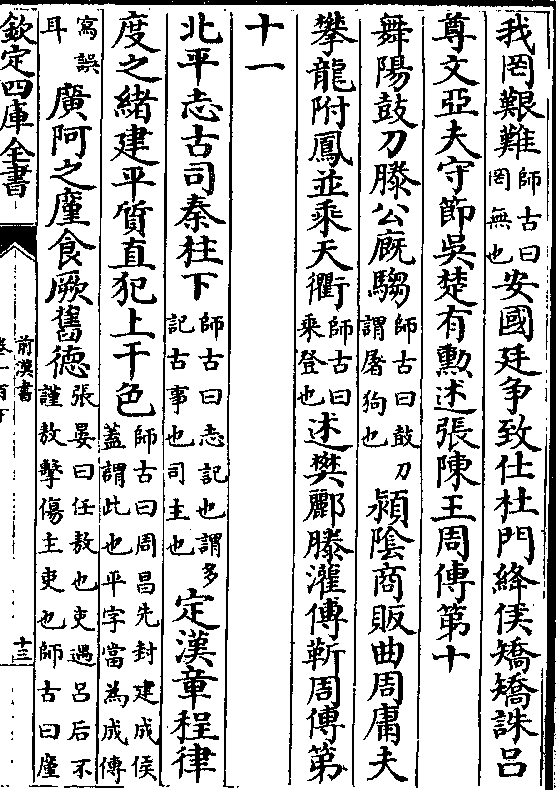 我罔艱難師古曰罔無也安國廷争致仕杜門絳侯矯矯誅吕
尊文亞夫守節吳楚有勳述張陳王周傳第十
舞陽鼓刀滕公廐騶師古曰鼓刀謂屠狗也潁陰商販曲周庸夫
攀龍附鳳並乘天衢師古曰乘登也述樊酈滕灌傅靳周傳第
十一
北平志古司秦柱下師古曰志記也謂多記古事也司主也定漢章程律
度之緒建平質直犯上干色師古曰周昌先封建成侯蓋謂此也平字當為成傳
寫誤耳廣阿之廑食厥舊德張晏曰任敖也吏遇吕后不謹敖擊傷主吏也師古曰廑
欽定四庫全書
前漢書
卷一百下
十三